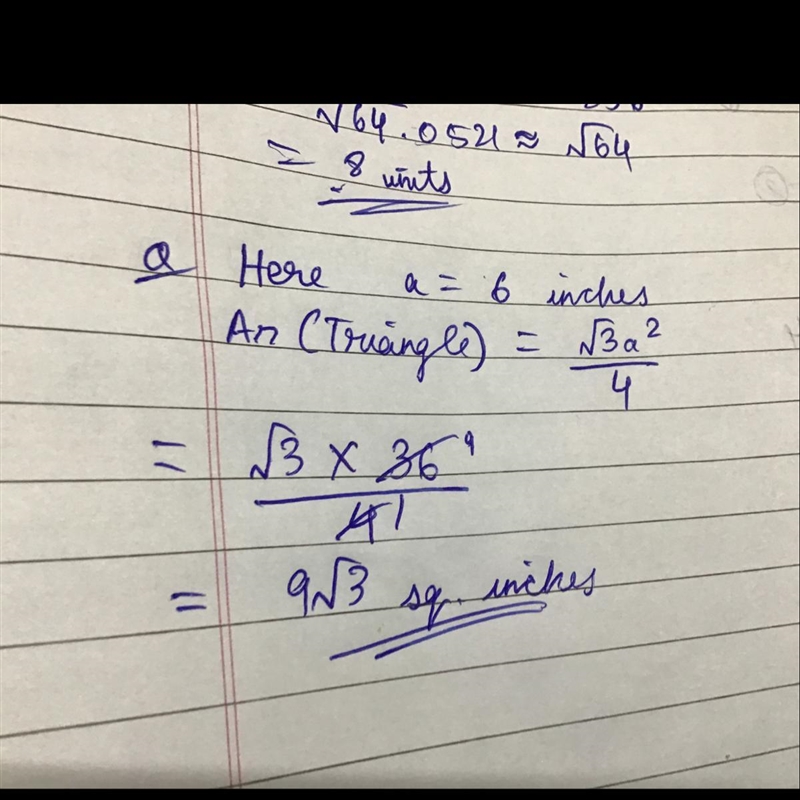 √64.0521 ≈ √64
= 8 units
Q Here a = 6 inches
Ar (Triangle) = √3a²/4
= √3 × 36 9 / 4 1
= 9√3 sq. inches